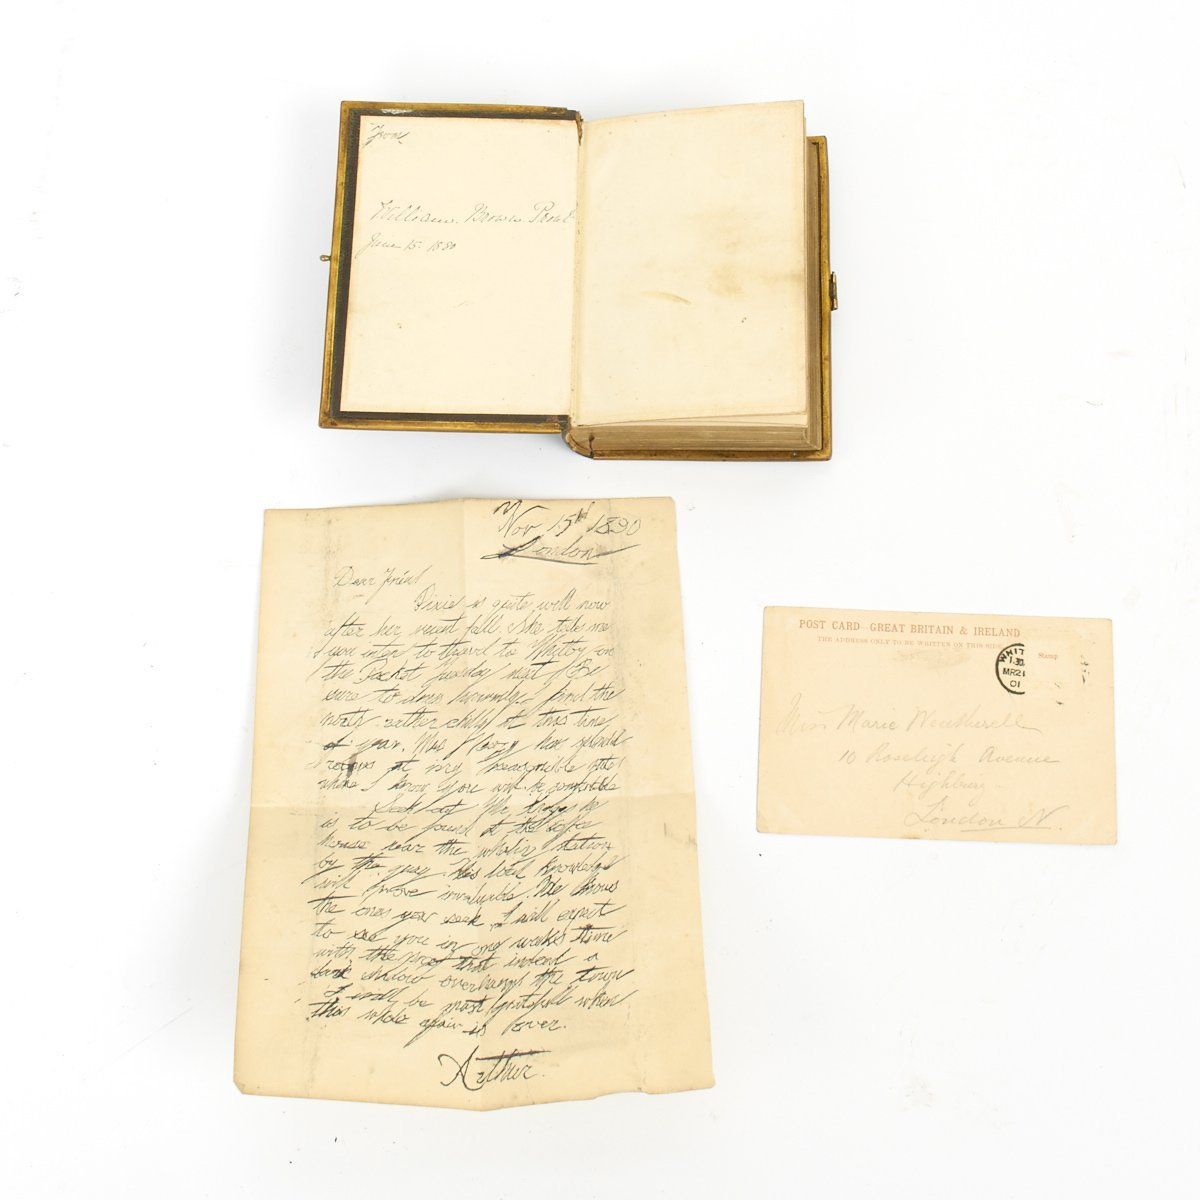 From
William Brown
June 15. 1880
Nov 15th 1890
London
Dear Friend
Pixie is quite well now
after her recent fall. She tells me
to travel to Whitby on
the Packet Tuesday next. Be
sure to I find the
north rather chilly at this time
of year. Mrs has splendid
rooms at very reasonable rates
where I know you will be comfortable
Seek out Mr he
is to be found at the coffee
House near the whaling station
by the quay. His local knowledge
will prove invaluable. He knows
the ones you seek. I will expect
to see you in one weeks time
with the proof that indeed a
dark shadow overhangs the town
I will be most gratefull when
this whole affair is over.
Arthur.
POST CARD GREAT BRITAIN & IRELAND
THE ADDRESS ONLY TO BE WRITTEN ON THIS SIDE
Stamp
WHIT
MR21
01
Miss Marie Weatherell
10 Roseleigh Avenue
Highbury
London N.